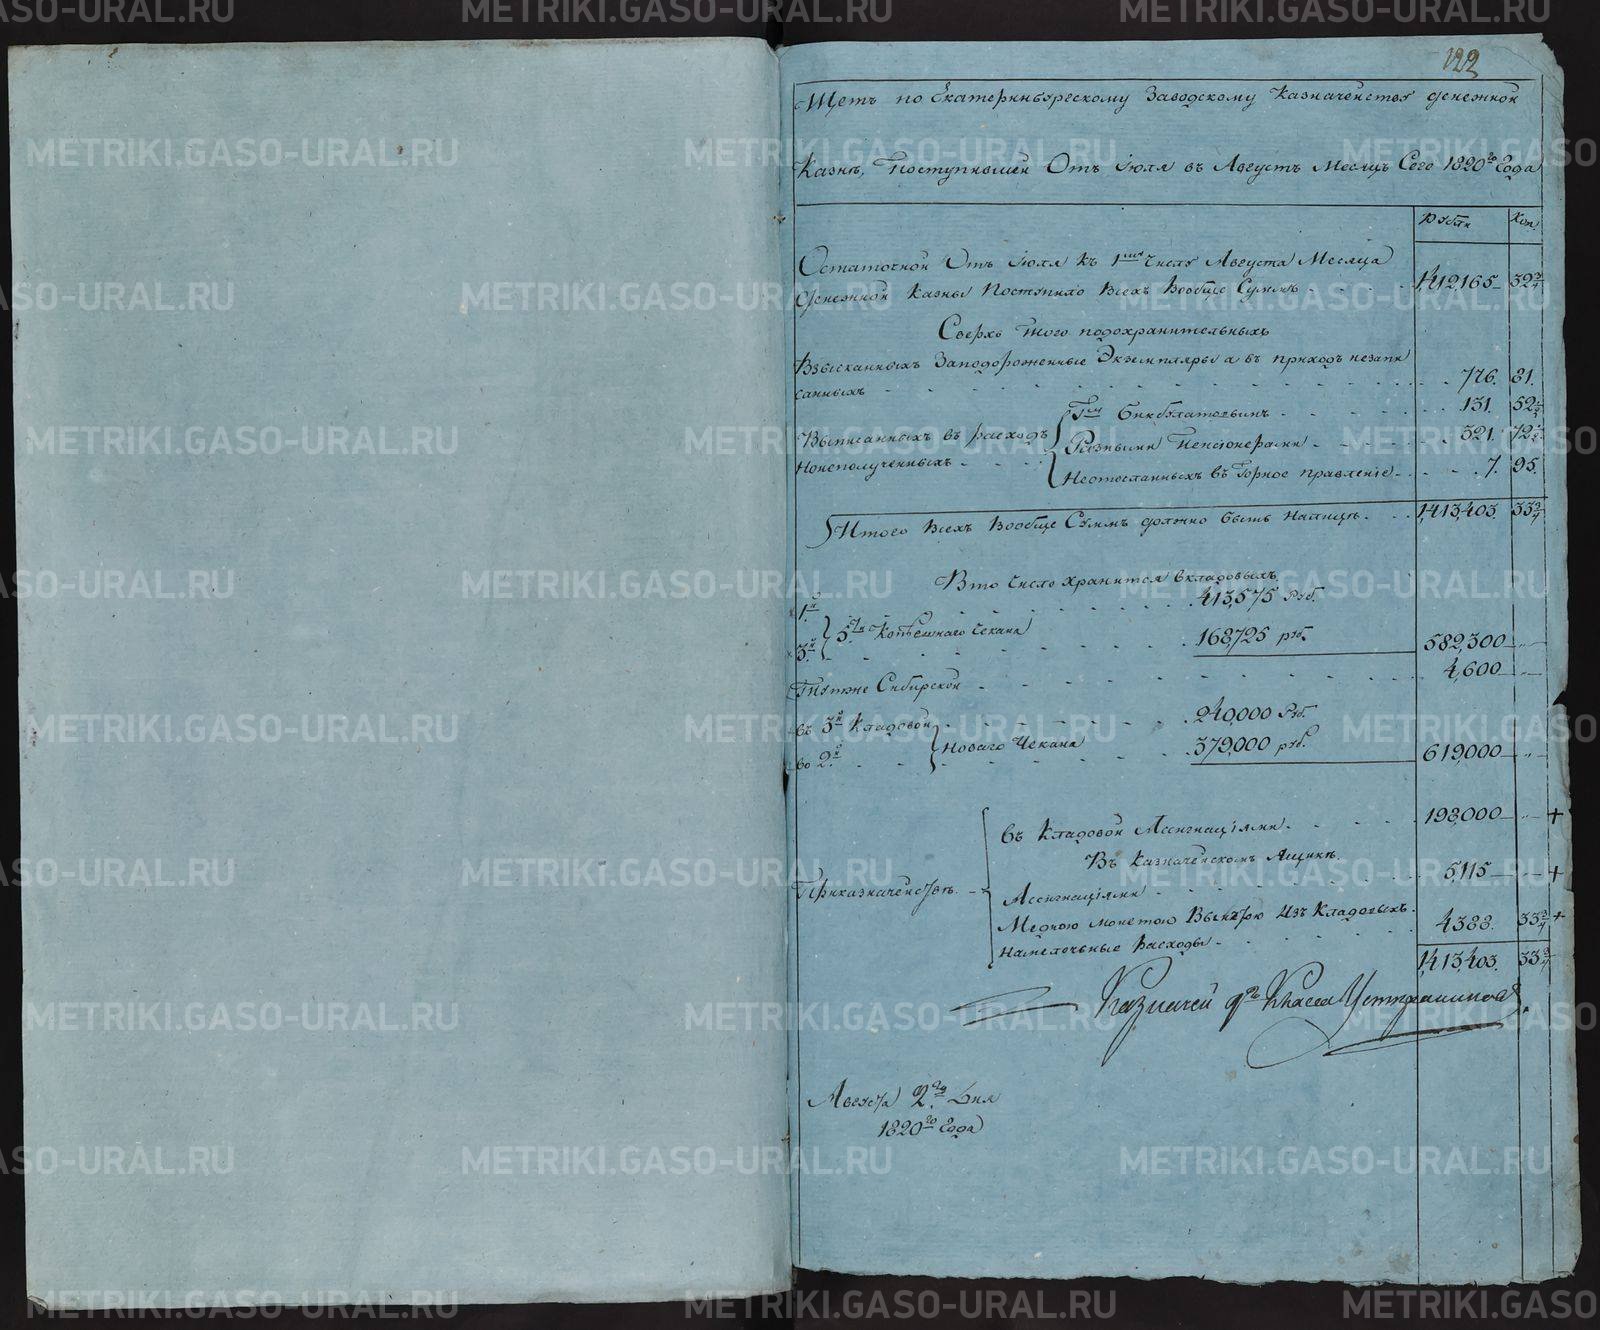 122
Щетъ по Екатеринбургскому Заводскому Казначейству денежной
Казнѣ, Поступившей Отъ Июля въ Августъ Месяцъ Сего 1820го Года
Рубли Коп.
Остаточной Отъ Июля къ 1му Числу Августа Месяца
денежной Казны Поступило Всехъ Вообще Суммъ 1,412,165 32 3/4
Сверхъ Того подохранительныхъ
Взысканныхъ Заподороженные Экземпляры а въ приходъ незапи
санныхъ 776. 81.
Выписанныхъ въ расходъ
Нонеполученныхъ
Гм Бикбулатовымъ 131. 52 1/2
Разными Пенсионерами 321. 72 1/2
Неотосланныхъ въ Горное правление 7. 95.
Итого Всехъ Вообще Суммъ должно быть Налицо 1,413,403. 33 3/4
Вто Число хранится вкладовыхъ
1й 413,575 Руб.
5ти Копеешнаго Чекана
3й 168,725 руб. 582,300
Тутже Сибирской 4,600
въ 3й Кладовой 240,000 Руб.
Новаго Чекана
во 2й 379,000 руб. 619,000
Приказначействе
Въ Кладовой Ассигнациями 198,000 +
Въ Казначейскомъ Ящике
Ассигнациями 5,115 +
Медною монетою Изъ Кладовыхъ
Намелочные Расходы 4388. 33 3/4 +
1,413,403. 33 3/4
Казначей Класса
Августа 2го Дня
1820го Года
METRIKI.GASO-URAL.RU